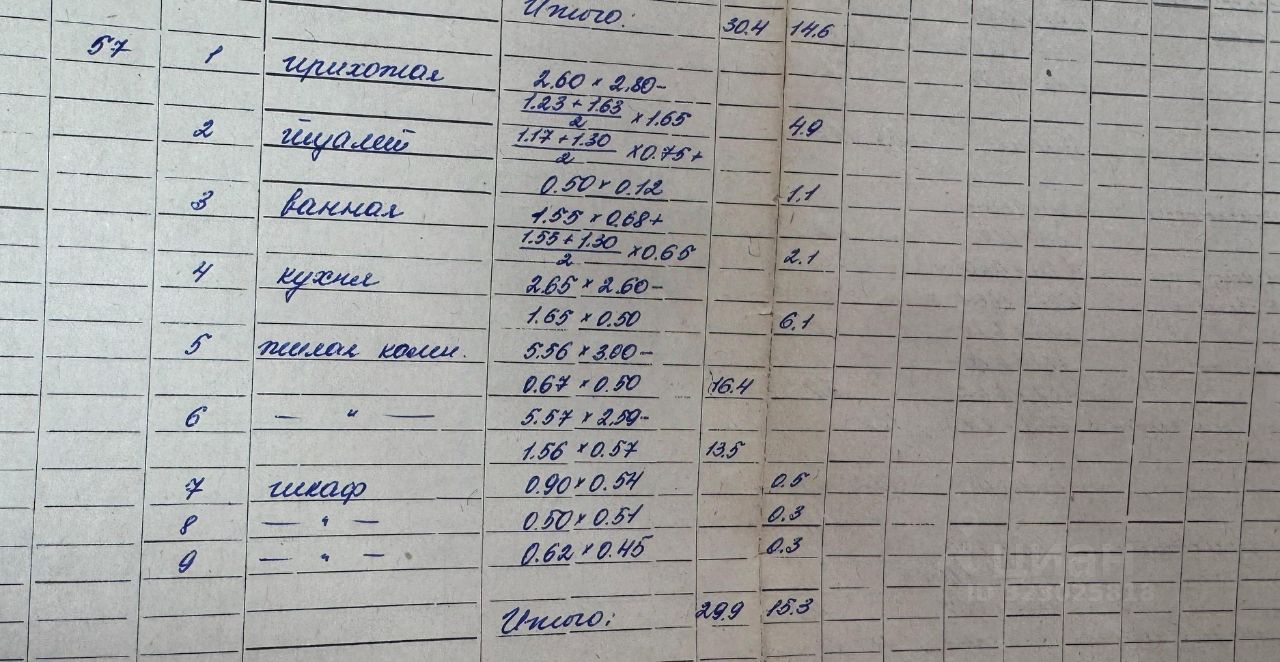 Итого: 30.4 14.6
57 1 прихожая 2.60 × 2.80-
1.23 + 1.63
2 × 1.65 4.9
2 туалет 1.17 + 1.30
2 × 0.75 +
0.50 × 0.12 1.1
3 ванная 1.55 × 0.68 +
1.55 + 1.30
2 × 0.65 2.1
4 кухня 2.65 × 2.60-
1.65 × 0.50 6.1
5 жилая комн. 5.56 × 3.00-
0.67 × 0.50 16.4
6 — " — 5.57 × 2.59-
1.56 × 0.57 13.5
7 шкаф 0.90 × 0.54 0.5
8 — " — 0.50 × 0.51 0.3
9 — " — 0.62 × 0.45 0.3
Итого: 29.9 15.3
циан